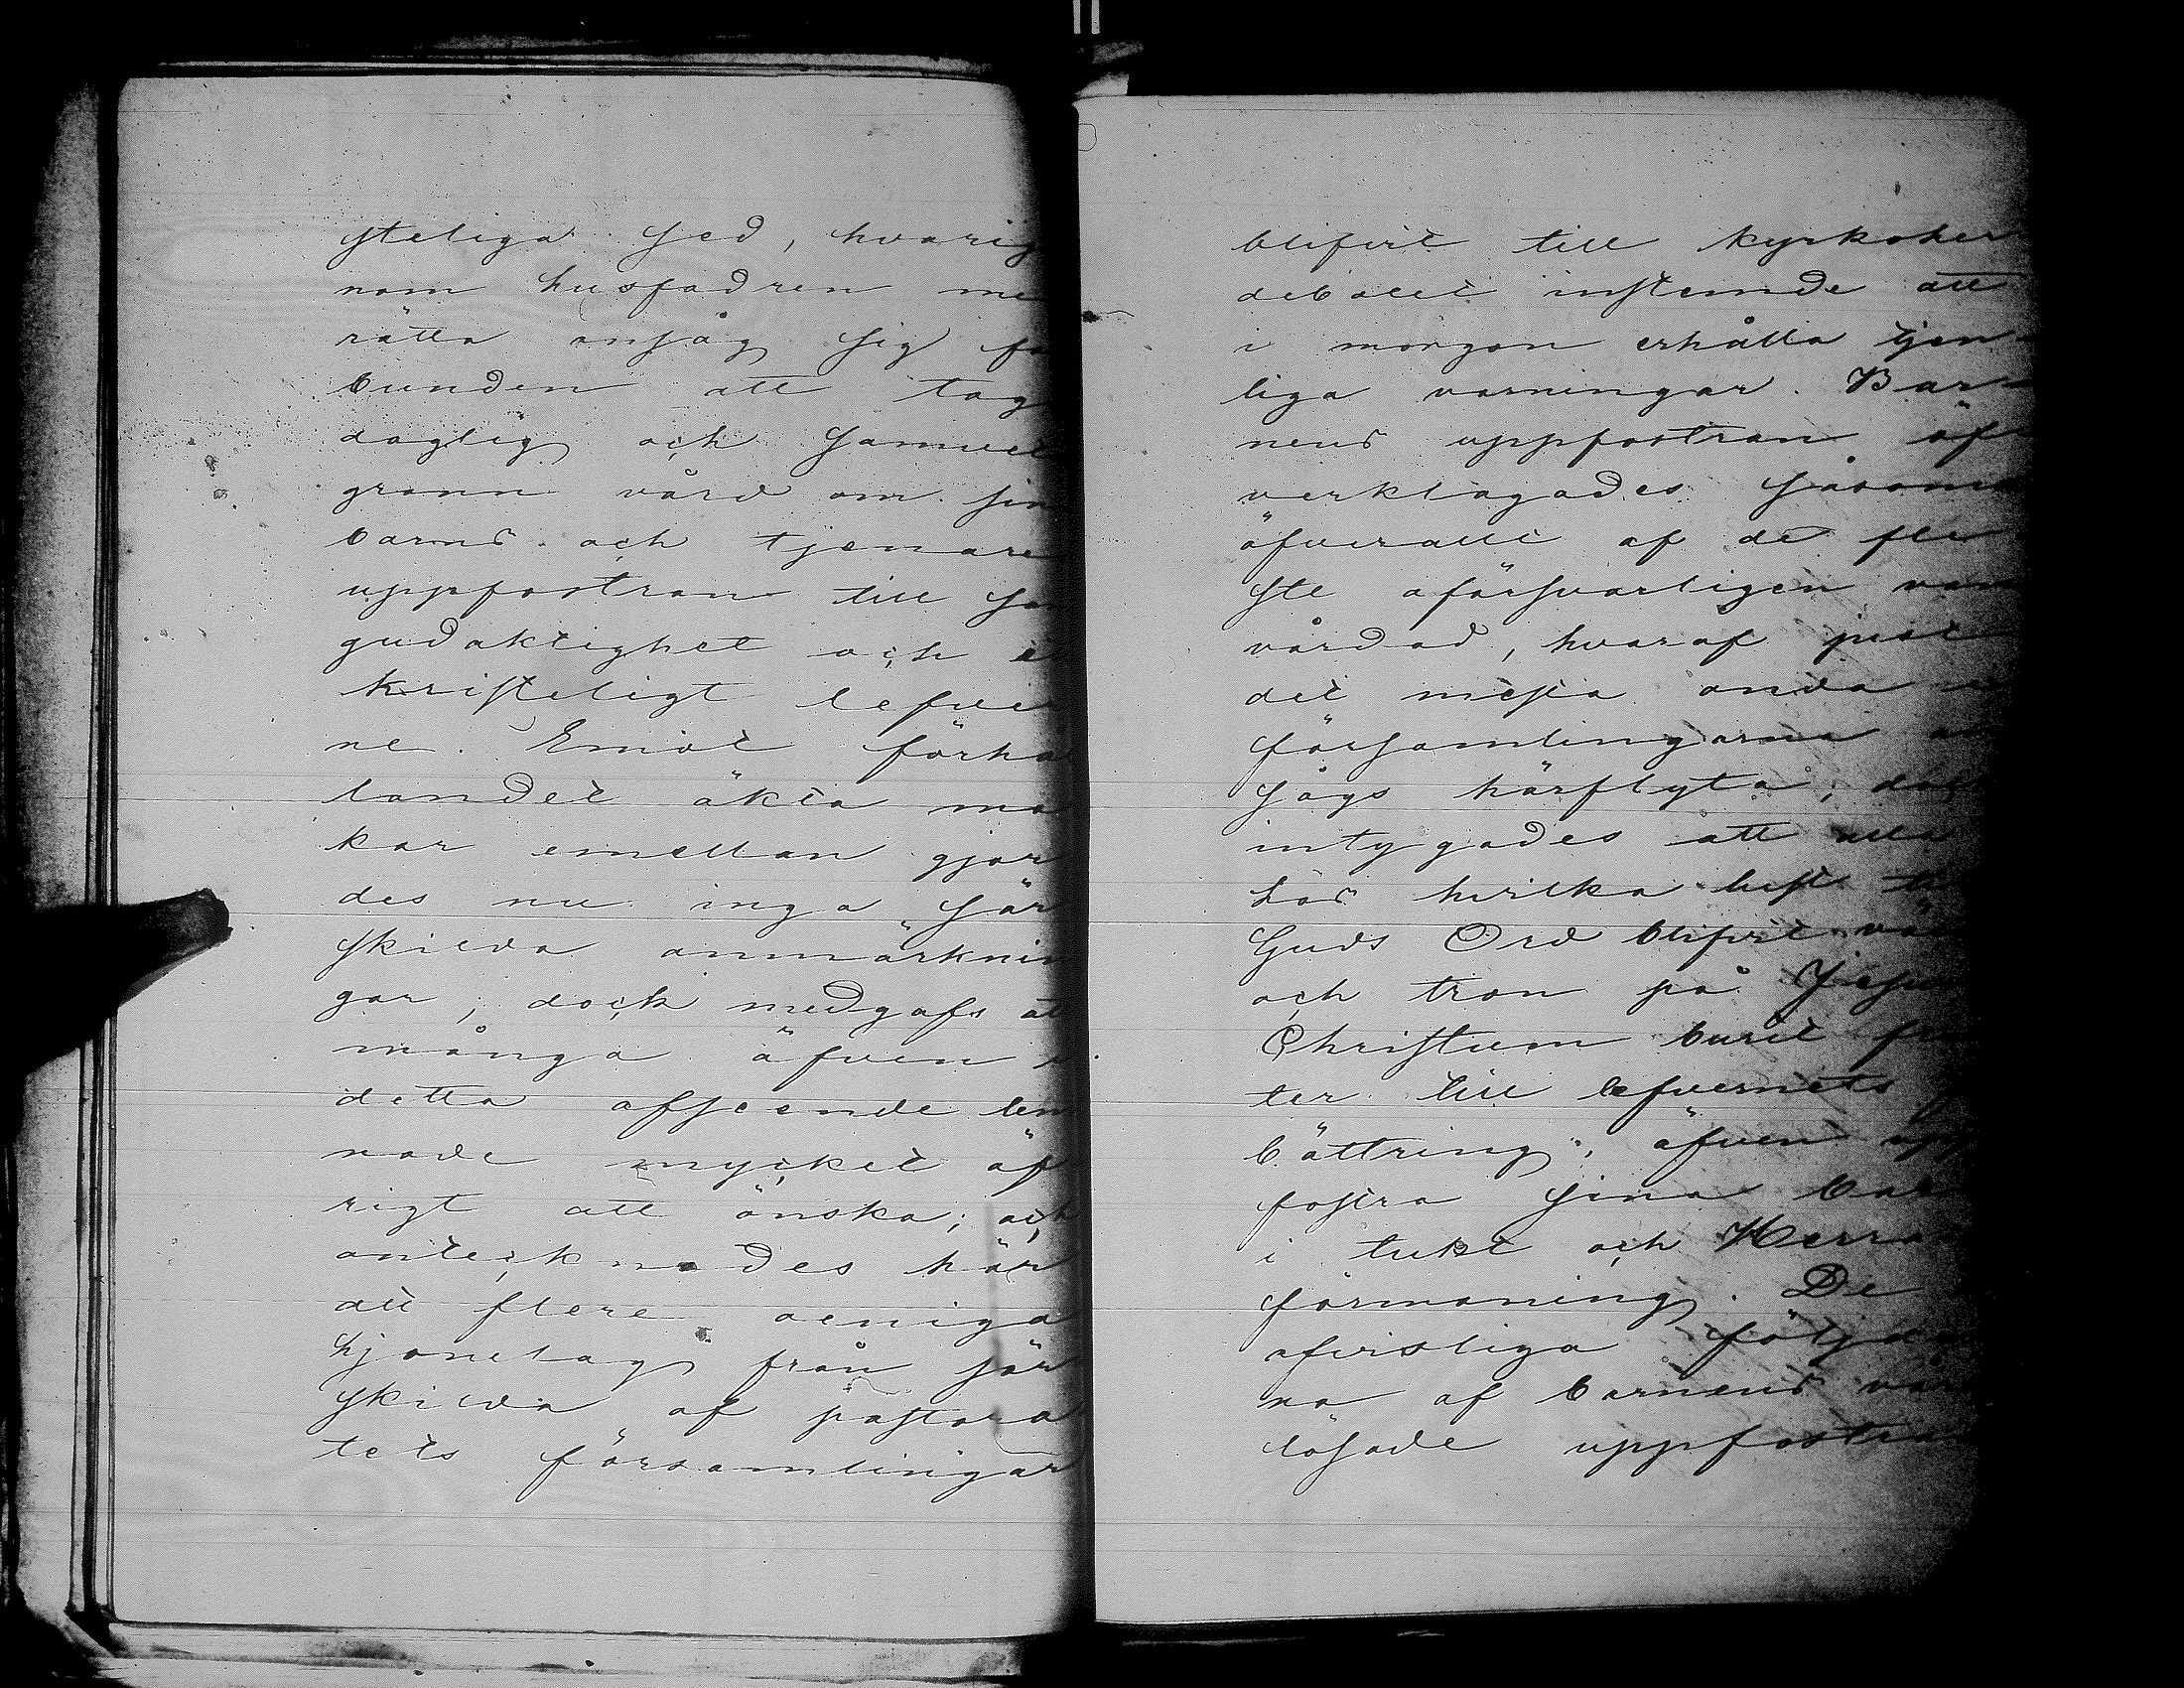 steliga sed, hvarig
nom husfadren me
rätta ansåg sig fö
bunden att tag
daglig och samvet
grann vård om sin
barns och tjenare
uppfostran till san
gudaktighet och et
kristeligt lefver
ne. Emot förhå
landet äkta ma
kar emellan gjor
des nu inga sär
skilda anmärknin
gar; dock medgafs at
många äfven i
detta afseende lem
nade mycket öf
rigt att önska; och
antecknades här
att flere oeniga
hjonelag från sär
skilda af pastora
tets församlingar
blifvit till kyrkoher
debolet instemde att
i morgon erhålla tjen
liga varningar. Bar
nens uppfostran öf
verklagades såsom
öfverallt af de fle
ste oförsvarligen van
vårdad, hvaraf just
det mesta onda i
församlingarna an
sågs härflyta; dock
intygades att alla
hos hvilka lust till
Guds Ord blifvit väc
och tron på Jesum
Christum burit fru
ter till lefvernets
bättring, äfven upp
fostra sina bar
i tukt och Herran
förmaning. De
ofvisliga följder
na af barnens vår
lösade uppfostran